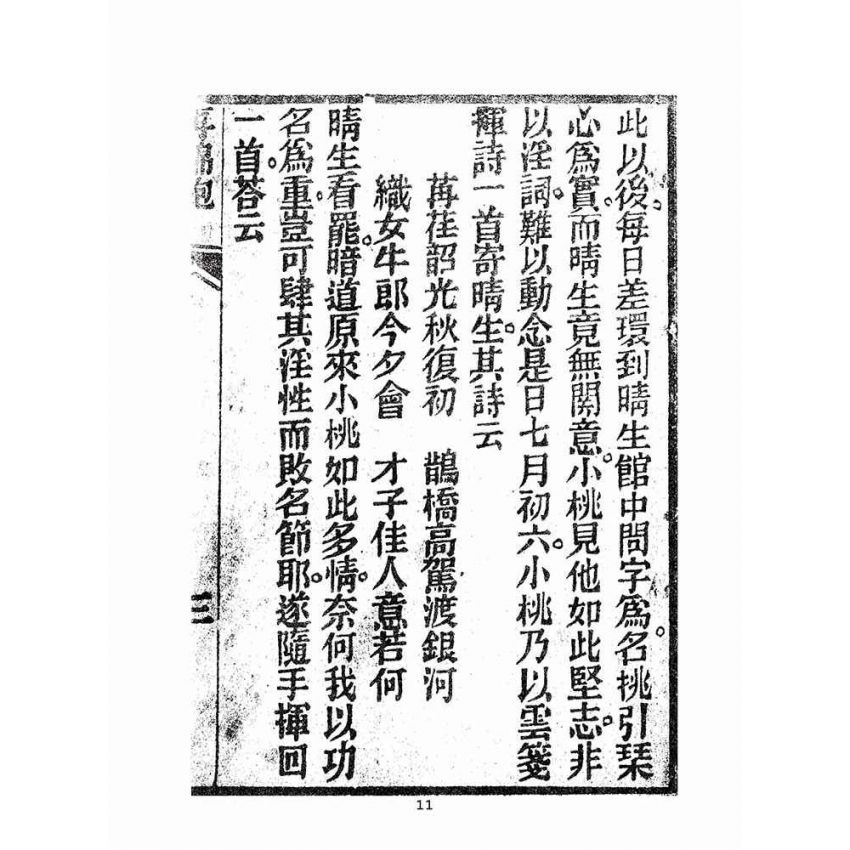 此以後。每日差環到晴生館中問字爲名。挑引琹
心爲實。而晴生竟無関意。小桃見他如此堅志。非
以淫詞。難以動念。是日七月初六。小桃乃以雲箋
揮詩一首寄晴生。其詩云
苒荏韶光秋復初 鵲橋高駕渡銀河
織女牛郎今夕會 才子佳人意若何
晴生看罷。暗道原來小桃如此多情。奈何我以功
名爲重。豈可肆其淫性而敗名節耶。遂隨手揮回
一首答云
三
11